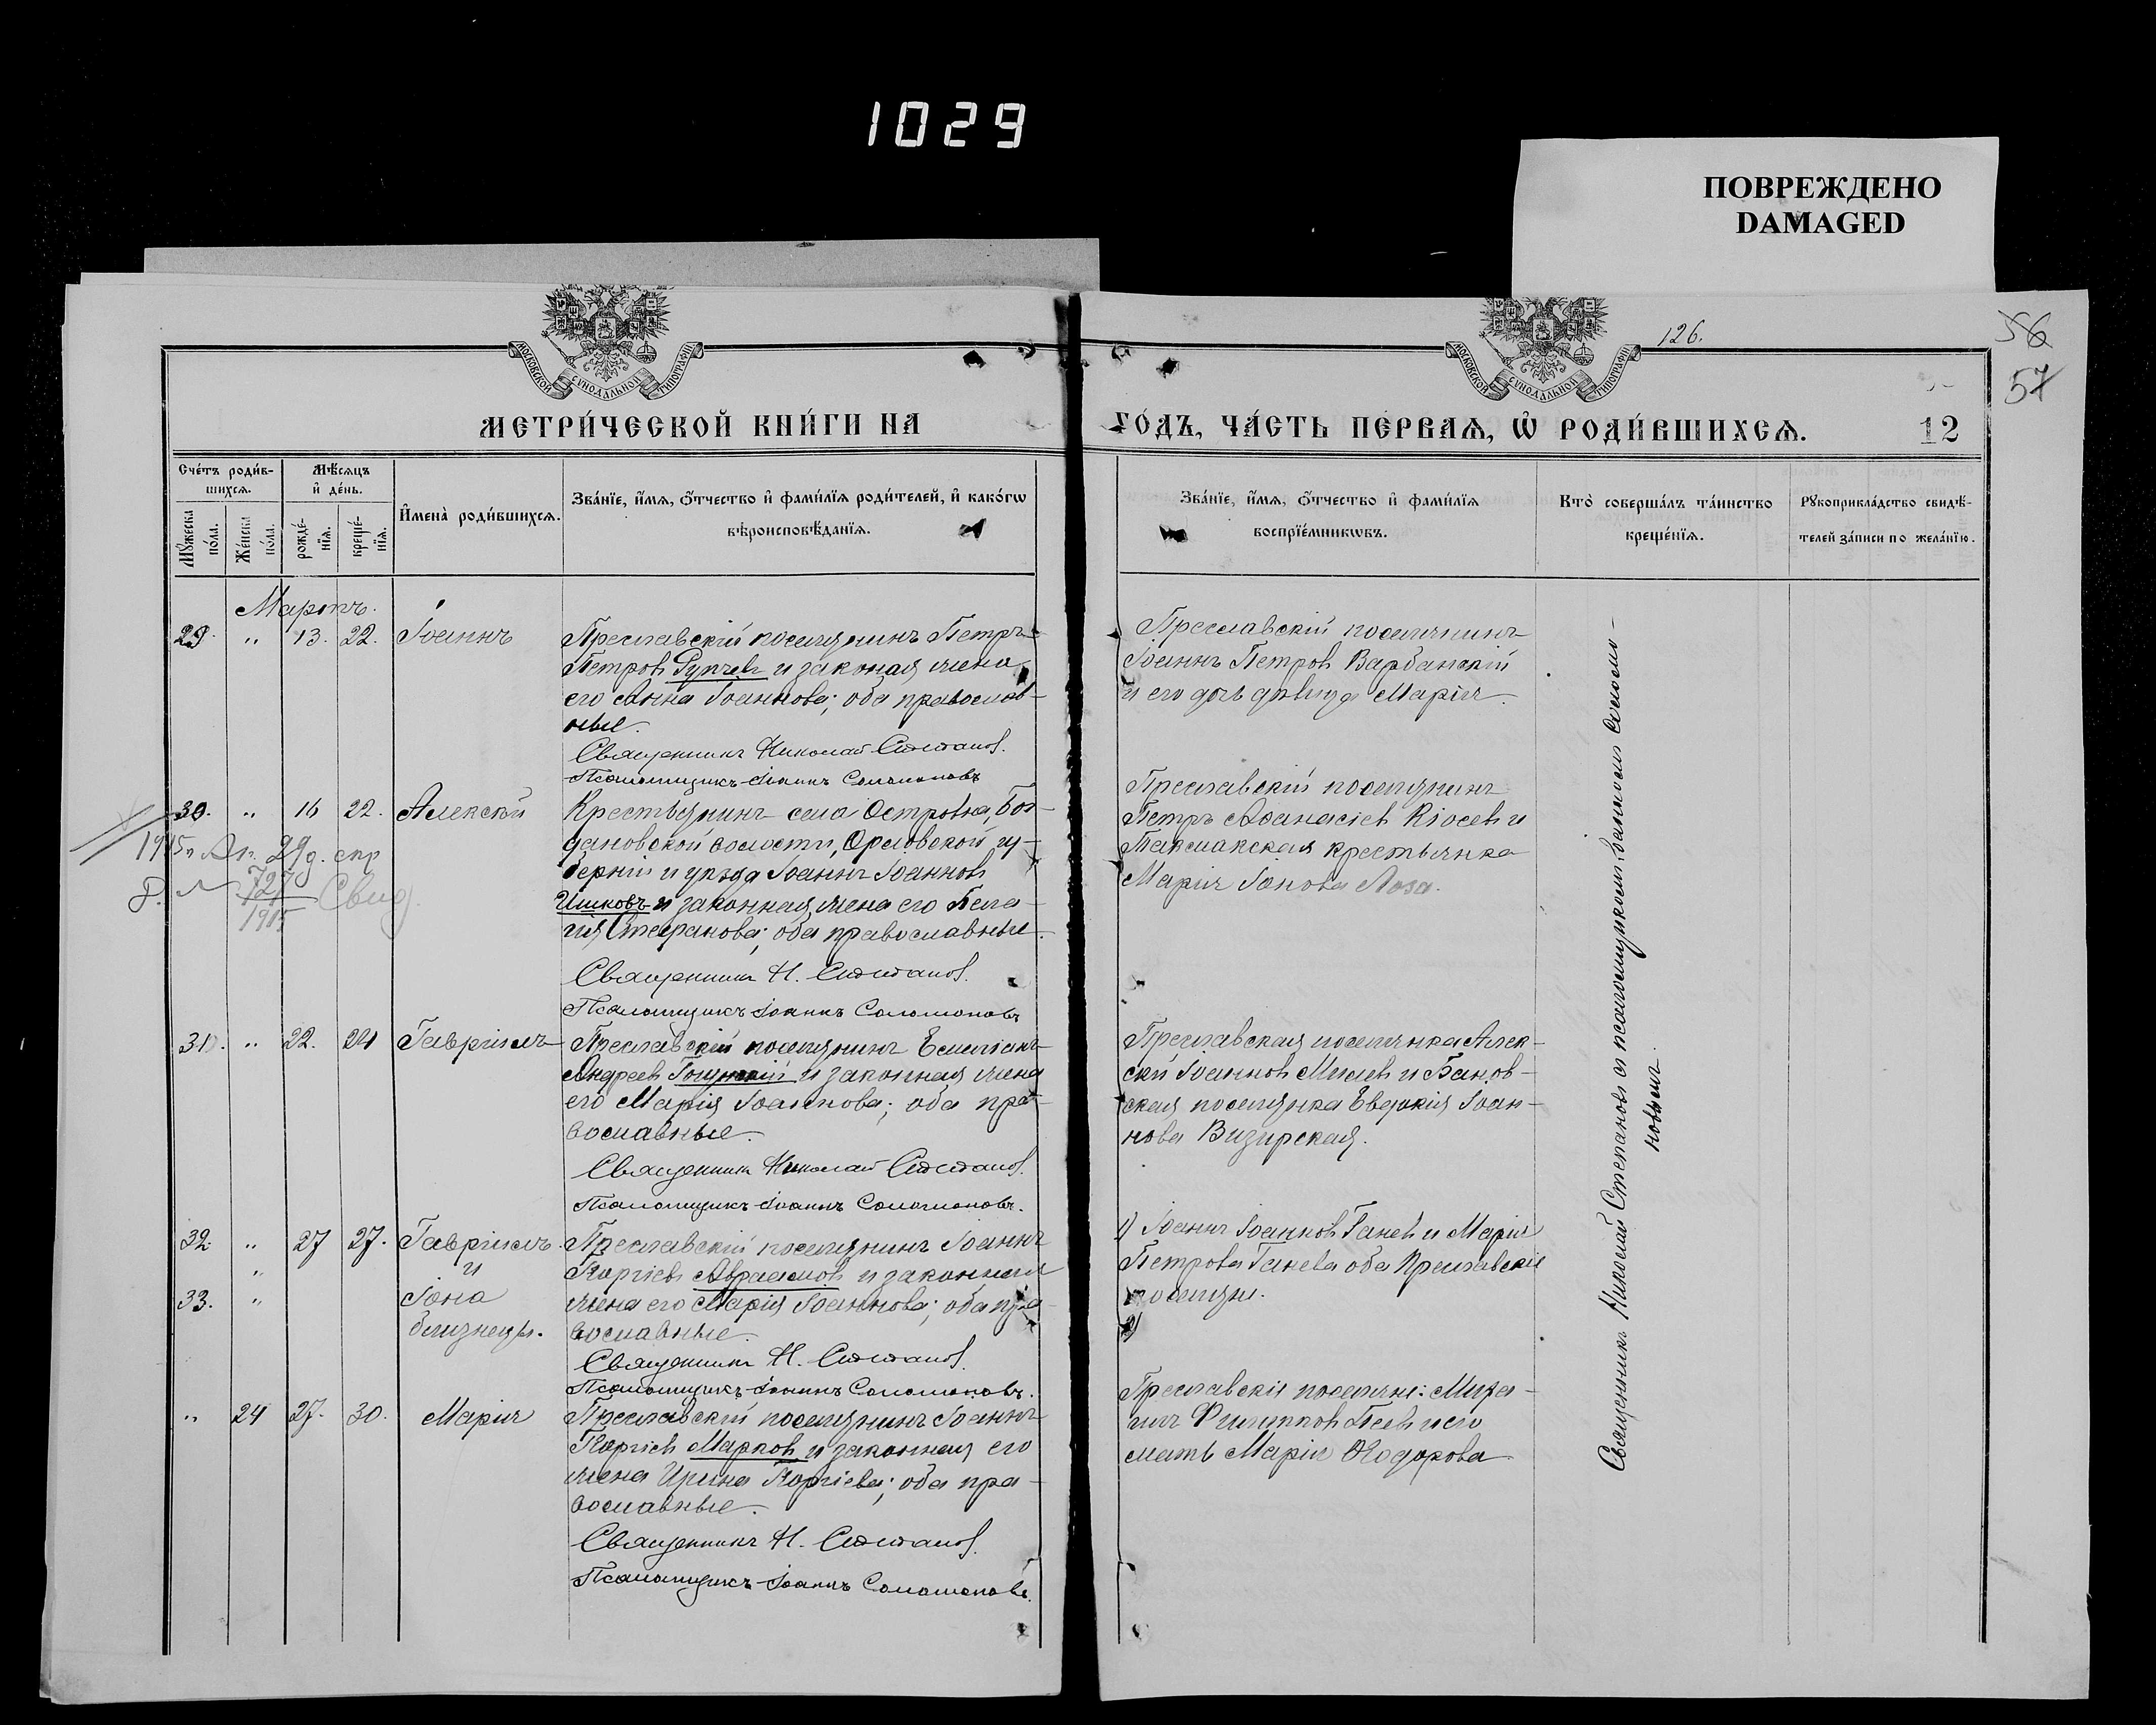 1029
ПОВРЕЖДЕНО
DAMAGED
МОСКОВСКОЙ СѴНОДАЛЬНОЙ ТИПОГРАФІИ
МОСКОВСКОЙ СѴНОДАЛЬНОЙ ТИПОГРАФІИ
126.
56
57
МЕТРИ́ЧЕСКОЙ КНИ́ГИ НА
ГО́ДЪ, ЧА́СТЬ ПЕ́РВАѦ, Ѡ҆ РОДИ́ВШИХСѦ.
12
Сче́тъ роди́в-
шихсѧ.
Мꙋ́жеска по́ла.
Же́нска по́ла.
Мѣ́сѧцъ
и҆ де́нь.
рожде́-
нїѧ.
креще́-
нїѧ.
И҆мена̀ роди́вшихсѧ.
Зва́нїе, и҆́мѧ, ѻ҆́тчество и҆ фами́лїѧ роди́телей, и҆ како́гѡ
вѣроисповѣ́данїѧ.
Зва́нїе, и҆́мѧ, ѻ҆́тчество и҆ фами́лїѧ
воспрїе́мникѡвъ.
Кто̀ соверша́лъ та́инство
креще́нїѧ.
Рꙋкоприкла́дство свидѣ́-
телей за́писи по жела́нїю.
Мартъ.
29. „ 13. 22. Іоаннъ
Преславскій поселянинъ Петръ
Петровъ Рупчевъ и законая жена
его Анна Іоаннова; оба православ-
ные.
Священникъ Николай Степанов.
Псаломщикъ Іоаннъ Соломоновъ
Преславскій поселянинъ
Іоаннъ Петровъ Варбанскій
и его дочь дѣвица Марія.
30. „ 16 22. Алексѣй
Крестьянинъ села Островка, Бог-
дановской волости, Орловской гу-
берніи и уѣзда Іоаннъ Іоанновъ
Ишковъ и законная жена его Пела-
гія Стефанова; оба православные.
Священникъ Н. Степанов.
Псаломщикъ Іоаннъ Соломоновъ
Преславскій поселянинъ
Петръ Аѳанасіевъ Кіосевъ и
Токмакская крестьянка
Марія Іонова Лоза.
1915 г. Ап. 29 д. спр
727
1915
Свид.
31. „ 22. 24 Гавріилъ
Преславскій поселянинъ Емиліанъ
Андреевъ и законная жена
его Марія Іоаннова; оба пра-
вославные.
Священникъ Николай Степанов.
Псаломщикъ Іоаннъ Соломоновъ.
Преславская поселянка Алек-
сѣй Іоанновъ Милевъ и Банов-
ская поселянка Евдокія Іоан-
нова Визирская.
32. „ 27 27. Гавріилъ
„ и
33. „ Іона
близнецы.
Преславскій поселянинъ Іоаннъ
Георгіевъ Авраамовъ и законная
жена его Марія Іоаннова; оба пра-
вославные.
Священникъ Н. Степанов.
Псаломщикъ Іоаннъ Соломоновъ.
1) Іоаннъ Іоанновъ Ганевъ и Марія
Петрова Ганева оба Преславскіе
поселяне.
2)
„ 24 27. 30. Марія
Преславскій поселянинъ Іоаннъ
Георгіевъ Марковъ и законная его
жена Ирина Георгіева; оба пра-
вославные.
Священникъ Н. Степанов.
Псаломщикъ Іоаннъ Соломоновъ.
Преславскіе поселяне: Миха-
илъ Филипповъ Пеевъ и его
мать Марія Ѳеодорова
Священникъ Николай Степановъ съ псаломщикомъ Іоанномъ Соломо-
новымъ.